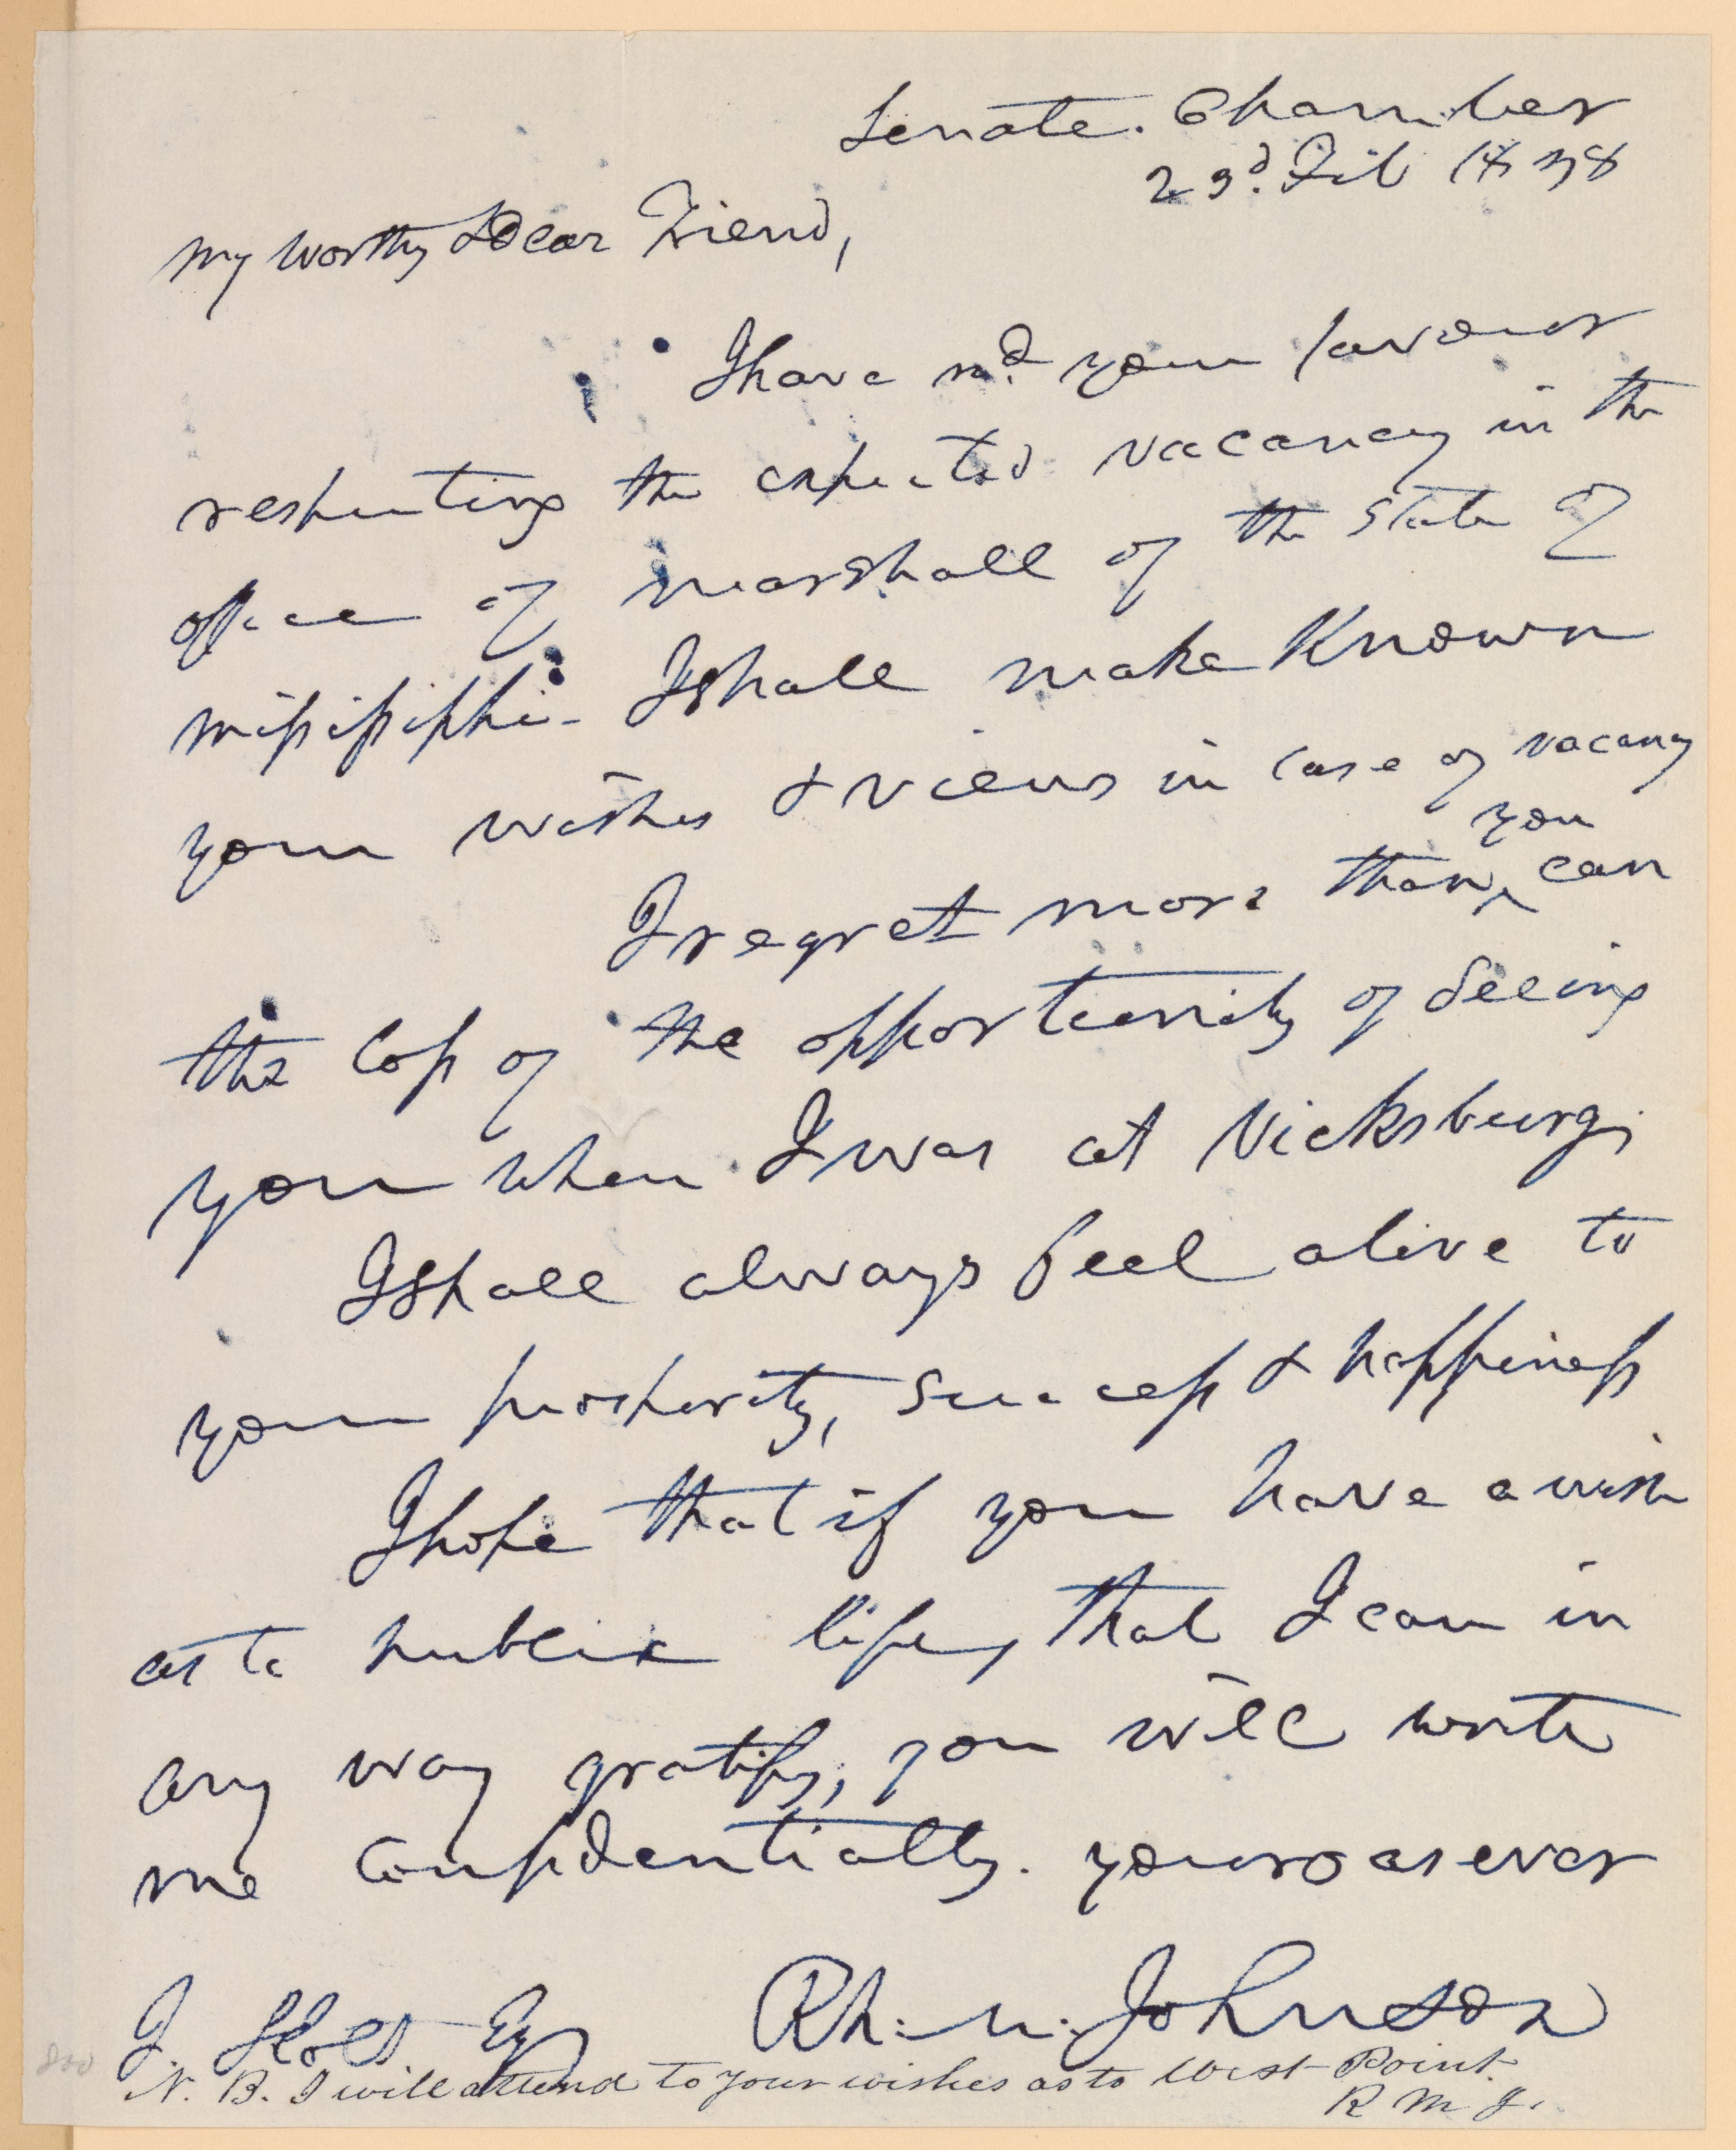 Senate. Chamber
23d. Feb 1838
My worthy Dear Friend,
I have recd. your favour
respecting the expected vacancy in the
office of marshall of the State of
Missisippi- I shall make Known
your wishes & views in case of vacancy
you
I regret more than ^ can
the loss of the opportunity of Seeing
you when I was at Vicksburg;
I Shall always feel alive to
your prosperity, success & happiness
I hope that if you have a wish
as to public life, that I can in
any way gratify, you will write
me confidentially. yours as ever
J. Holt Esq Rh: M. Johnson
N. B. I will attend to your wishes as to West Point.
R M J.